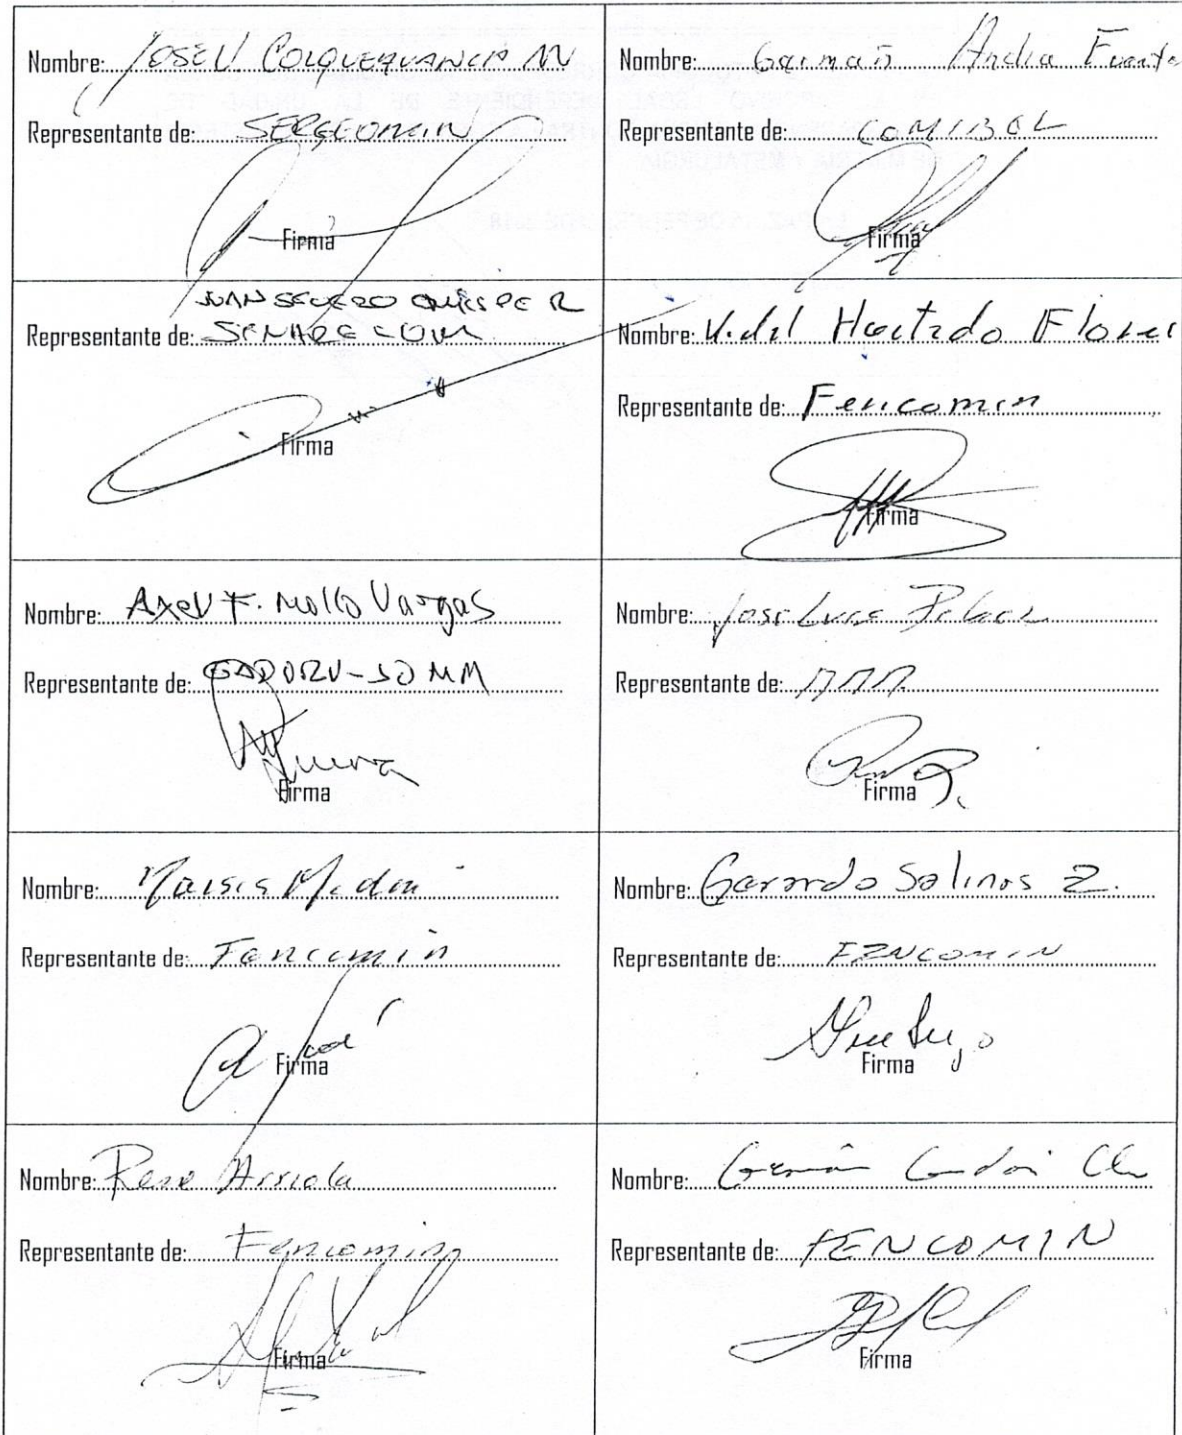 Nombre: JOSE V COLQUEHUANCA M
Representante de: SERGEOMIN
Firma
Nombre: Germañ Andia Fuente
Representante de: COMIBOL
Firma
JUAN SEVERO QUISPE R
Representante de: SENARECOM
Firma
Nombre: Vidal Hurtado Flores
Representante de: Fencomin
Firma
Nombre: Axel F. Mollo Vargas
Representante de: GADORU-SDMM
Firma
Nombre: Jose Luis
Representante de: MMM.
Firma
Nombre: Moises Medin
Representante de: Fencomin
Firma
Nombre: Gerardo Salinas Z.
Representante de: FENCOMIN
Firma
Nombre: Rene Arriola
Representante de: Fencomin
Firma
Nombre: Germán
Representante de: FENCOMIN
Firma